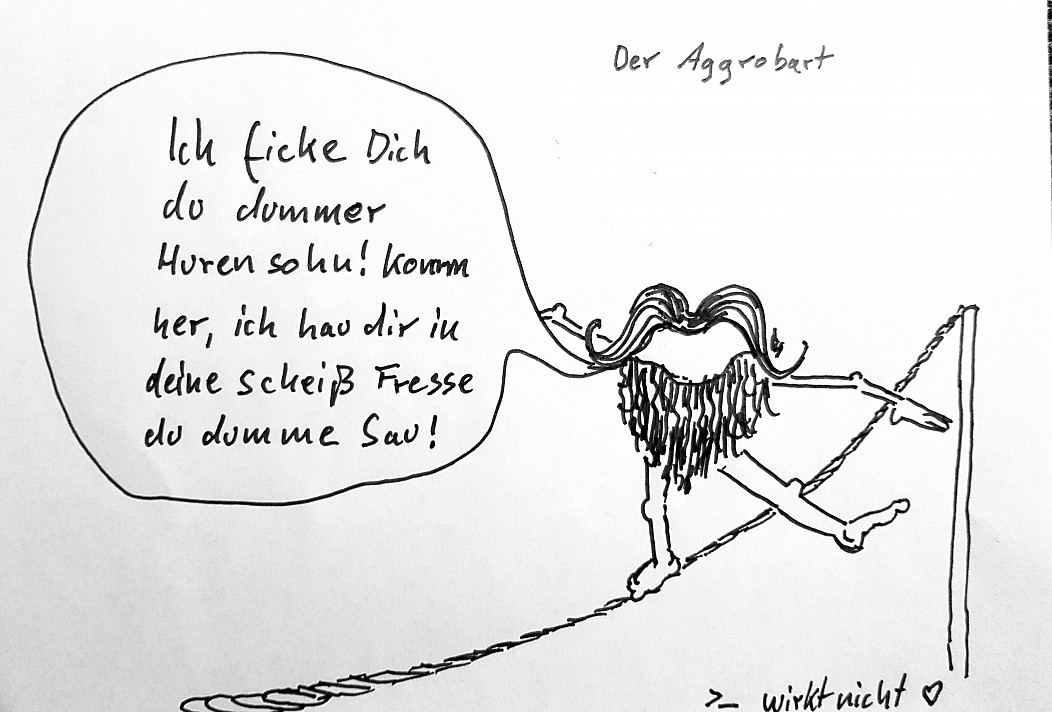 Der Aggrobart
Ich ficke Dich
du dummer
Hurensohn! Komm
her, ich hau dir in
deine scheiß Fresse
du dumme Sau!
>_ wirktnicht ♡